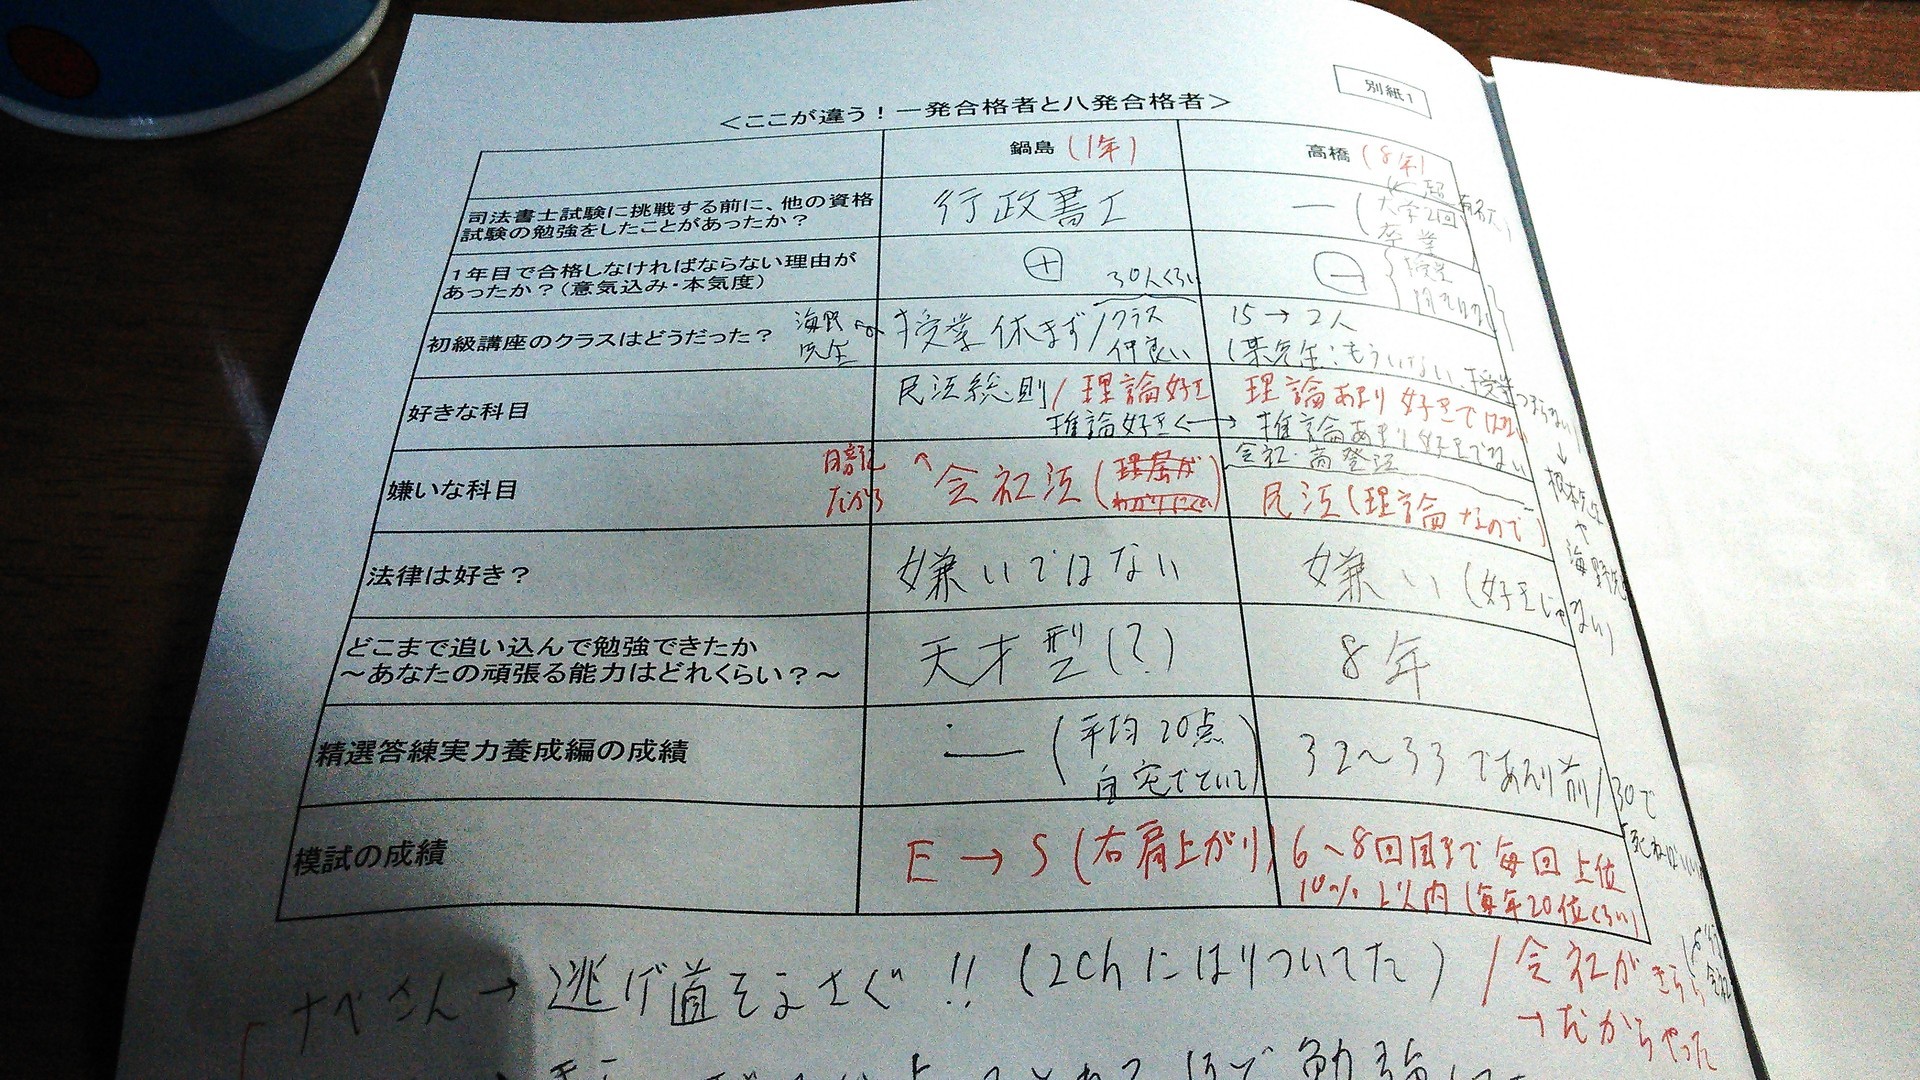 別紙1
<ここが違う！一発合格者と八発合格者>
鍋島 (1年)
高橋 (8年)
司法書士試験に挑戦する前に、他の資格
試験の勉強をしたことがあったか？
行政書士
― (大学2回
卒業
1年目で合格しなければならない理由が
あったか？(意気込み・本気度)
⊕
⊖
30人くらい
初級講座のクラスはどうだった？
海野
先生
授業休まず/クラス
仲良い
15→2人
(某先生:もういない、授業つまらない
↓
根本先生
や
海野先生
好きな科目
民法総則/理論好き
推論好き←→
理論あまり好きではない
推論あまり好きでない
嫌いな科目
暗記
だから
会社法(理屈が
わかりにくい)
会社・商登法
民法(理論なので)
法律は好き？
嫌いではない
嫌い(好きじゃない)
どこまで追い込んで勉強できたか
～あなたの頑張る能力はどれくらい？～
天才型(?)
8年
精選答練実力養成編の成績
― (平均20点
自宅でといて)
32～33であたり前/30で
死ねばいい
模試の成績
E→S(右肩上がり)
6～8回目まで毎回上位
10%以内(毎年20位くらい)
ナベさん→逃げ道をふさぐ!!(2chにはりついてた)/会社がきらい
→だからやった
勉強